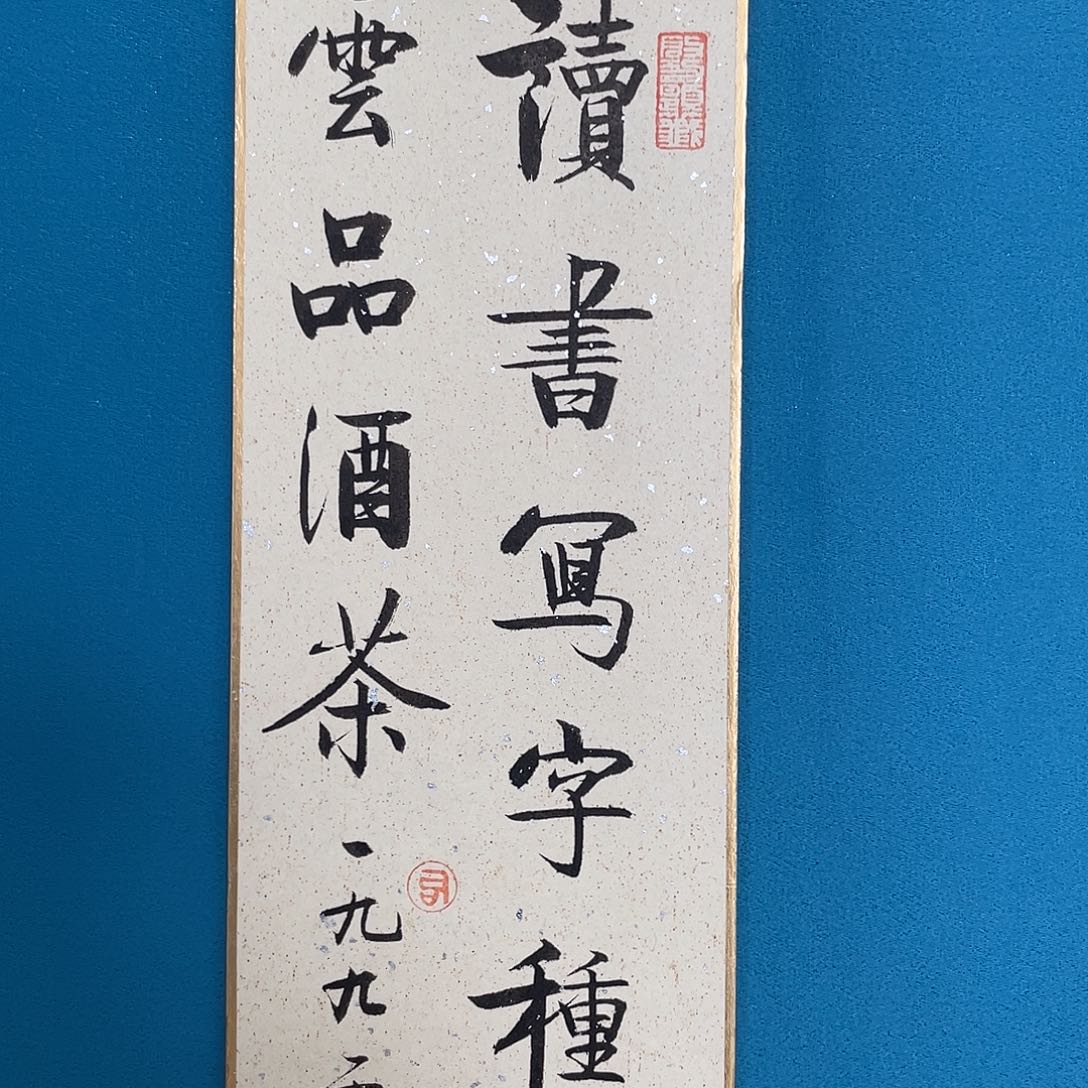 讀書寫字種
雲品酒茶
一九九